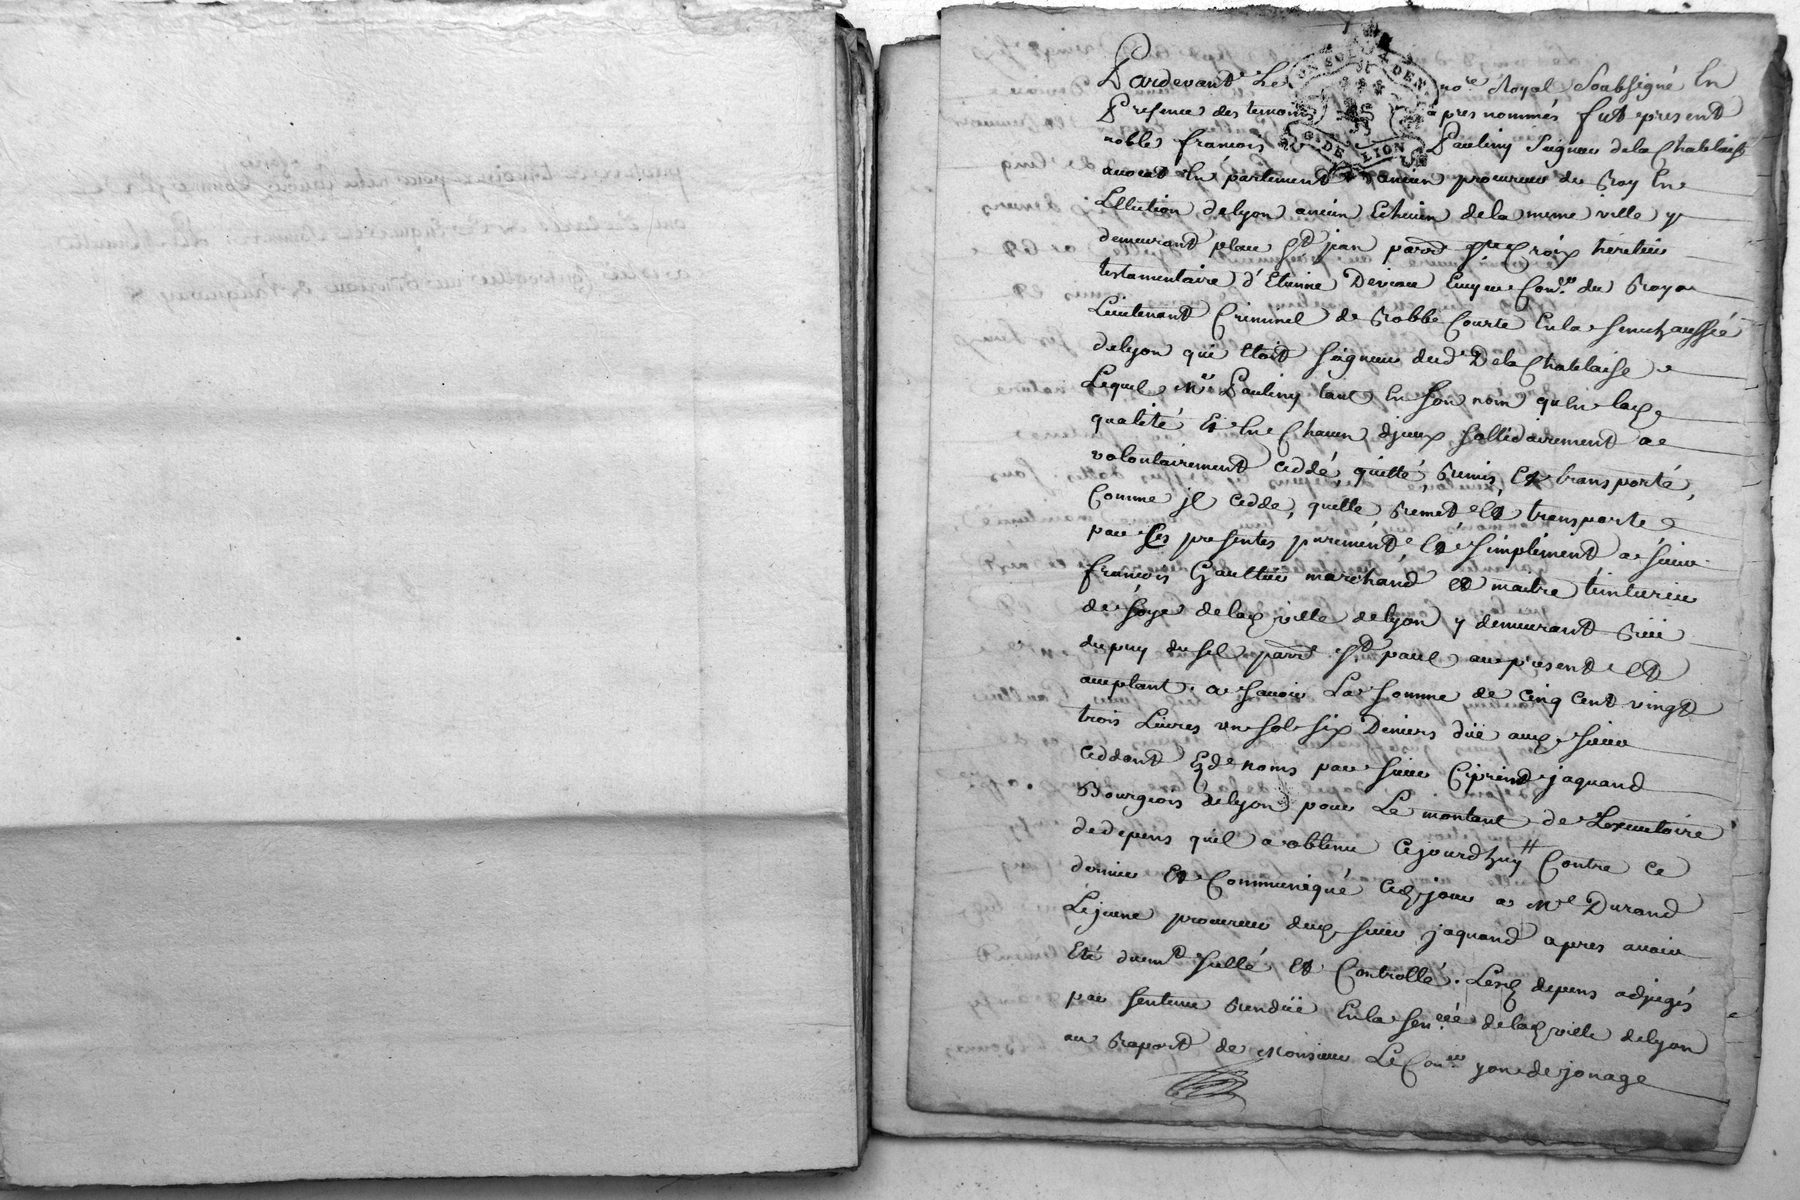 Pardevant Le no.re Royal Soubsigné En
Presence des temoins apres nommés fut present
noble francois Pauliny Seigneur dela Chablaise
avocat En parlement ancien procureur du Roy En
LElection delyon ancien Echevin dela meme ville y
demeurant place St jean parr. Ste Croix heritier
testamentaire d'Etienne Deriau Ecuyer Con.er du Roy
Lieutenant Criminel de Robbe Courte Enla Senechaussée
delyon qui Etoit Seigneur dud. Dela Chablaise
Lequel Mr Pauliny tant En Son nom quEn lad.
qualité Et En Chacun djceux Sollidairement a
volontairement ceddé, quitté, Remis, Et transporté,
Comme jl cedde, quitte, Remet, Et transporte
par Ces presentes purement Et Simplement a Sieur
francois Gaultier marchand Et maitre teinturier
de Soye delad. ville delyon y demeurant Rüe
dupuy du Sel parr. St paul au present Et
acceptant. a Savoir La Somme de Cinq Cent vingt
trois Livres un Sol Six Deniers düe aud. Sieur
Ceddant Esd. noms par Sieur Ciprien jaquand
Bourgeois delyon pour Le montant de Lexecutoire
dedepens quil a obtenu Cejourdhuy Contre Ce
dernier Et Communiqué Ced. jour a Me Durand
Lejeune procureur dud. Sieur jaquand apres avoir
Eté duem.t Scellé Et Controllé. Lesd. depens adjugés
par Sentence Rendüe Enla Sen.ée delad. ville delyon
au Raport de Monsieur Le Con.er yon de jonage
ON SOL DEN
G. DE LION